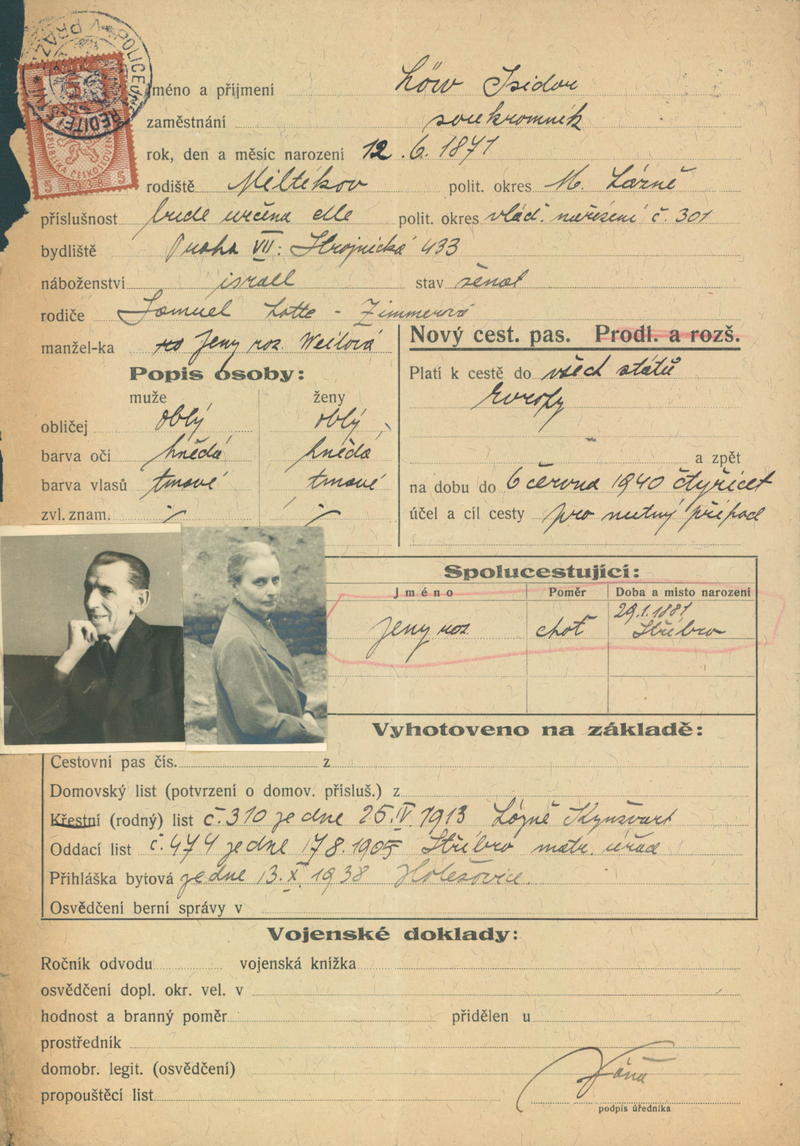 POLICEJNÍ ŘEDITELSTVÍ V PRAZE
REPUBLIKA ČESKOSLOVENSKÁ
5 1938 5
Jméno a příjmení Löw Isidor
zaměstnání soukromník
rok, den a měsíc narození 12.6.1871
rodiště Miltikov polit. okres M. Lázně
příslušnost bude určena dle polit. okres vlád. nařízení č. 301
bydliště Praha VII: Strojnická 433
náboženství israel stav ženat
rodiče Samuel Lotte - Zimmerová
manžel-ka Jeny roz. Weilová
Nový cest. pas. Prodl. a rozš.
Popis osoby:
muže ženy
obličej oblý oblý
barva očí hnědá hnědá
barva vlasů tmavé tmavé
zvl. znam. ·/· ·/·
Platí k cestě do všech států
Evropy
a zpět
na dobu do 6 června 1940 čtyřicet
účel a cíl cesty pro nutný případ
Spolucestující:
Jméno Poměr Doba a místo narození
Jeny roz. choť 29.1.1881
Stříbro
Vyhotoveno na základě:
Cestovní pas čís. z
Domovský list (potvrzení o domov. přísluš.) z
Křestní (rodný) list č. 310 ze dne 25.IV.1913 Lázně Kynžvart
Oddací list č. 474 ze dne 17.8.1905 Stříbro matr. úřad
Přihláška bytová ze dne 13.X.1938 Holešovice.
Osvědčení berní správy v
Vojenské doklady:
Ročník odvodu vojenská knížka
osvědčení dopl. okr. vel. v
hodnost a branný poměr přidělen u
prostředník
domobr. legit. (osvědčení)
propouštěcí list
Váňa
podpis úředníka